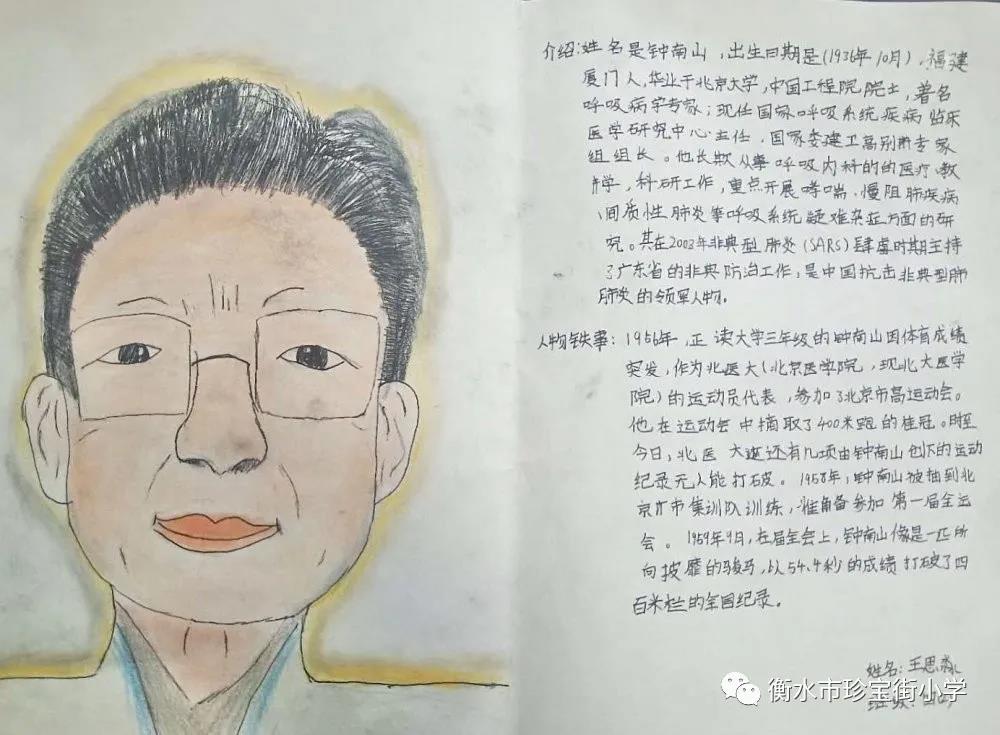 介绍:姓名是钟南山,出生日期是(1936年10月),福建
厦门人,毕业于北京大学,中国工程院院士,著名
呼吸病学专家;现任国家呼吸系统疾病临床
医学研究中心主任,国家委建卫高别肃专家
组组长。他长欺从拳呼吸内科的的医疗、教
学,科研工作,重点开展哮喘、慢阻肺疾病
、间质性肺炎等呼吸系统疑难杂症方面的研
究。其在2003年非典型肺炎(SARS)肆虐时期主持
了广东省的非典防治工作,是中国抗击非典型肺
肺炎的领军人物。
人物轶事:1956年,正读大学三年级的钟南山因体育成绩
突发,作为北医大(北京医学院,现北大医学
院)的运动员代表,参加了北京市高运动会。
他在运动会中摘取了400米跑的桂冠。时至
今日,北医大还有几项由钟南山创下的运动
纪录无人能打破。1958年,钟南山被抽到北
京市集训队训练,准备参加第一届全运
会。1959年9月,在届全会上,钟南山像是一匹所
向披靡的骏马,以54.4秒的成绩打破了四
百米栏的全国纪录。
姓名:王思淼
班级:
衡水市珍宝街小学